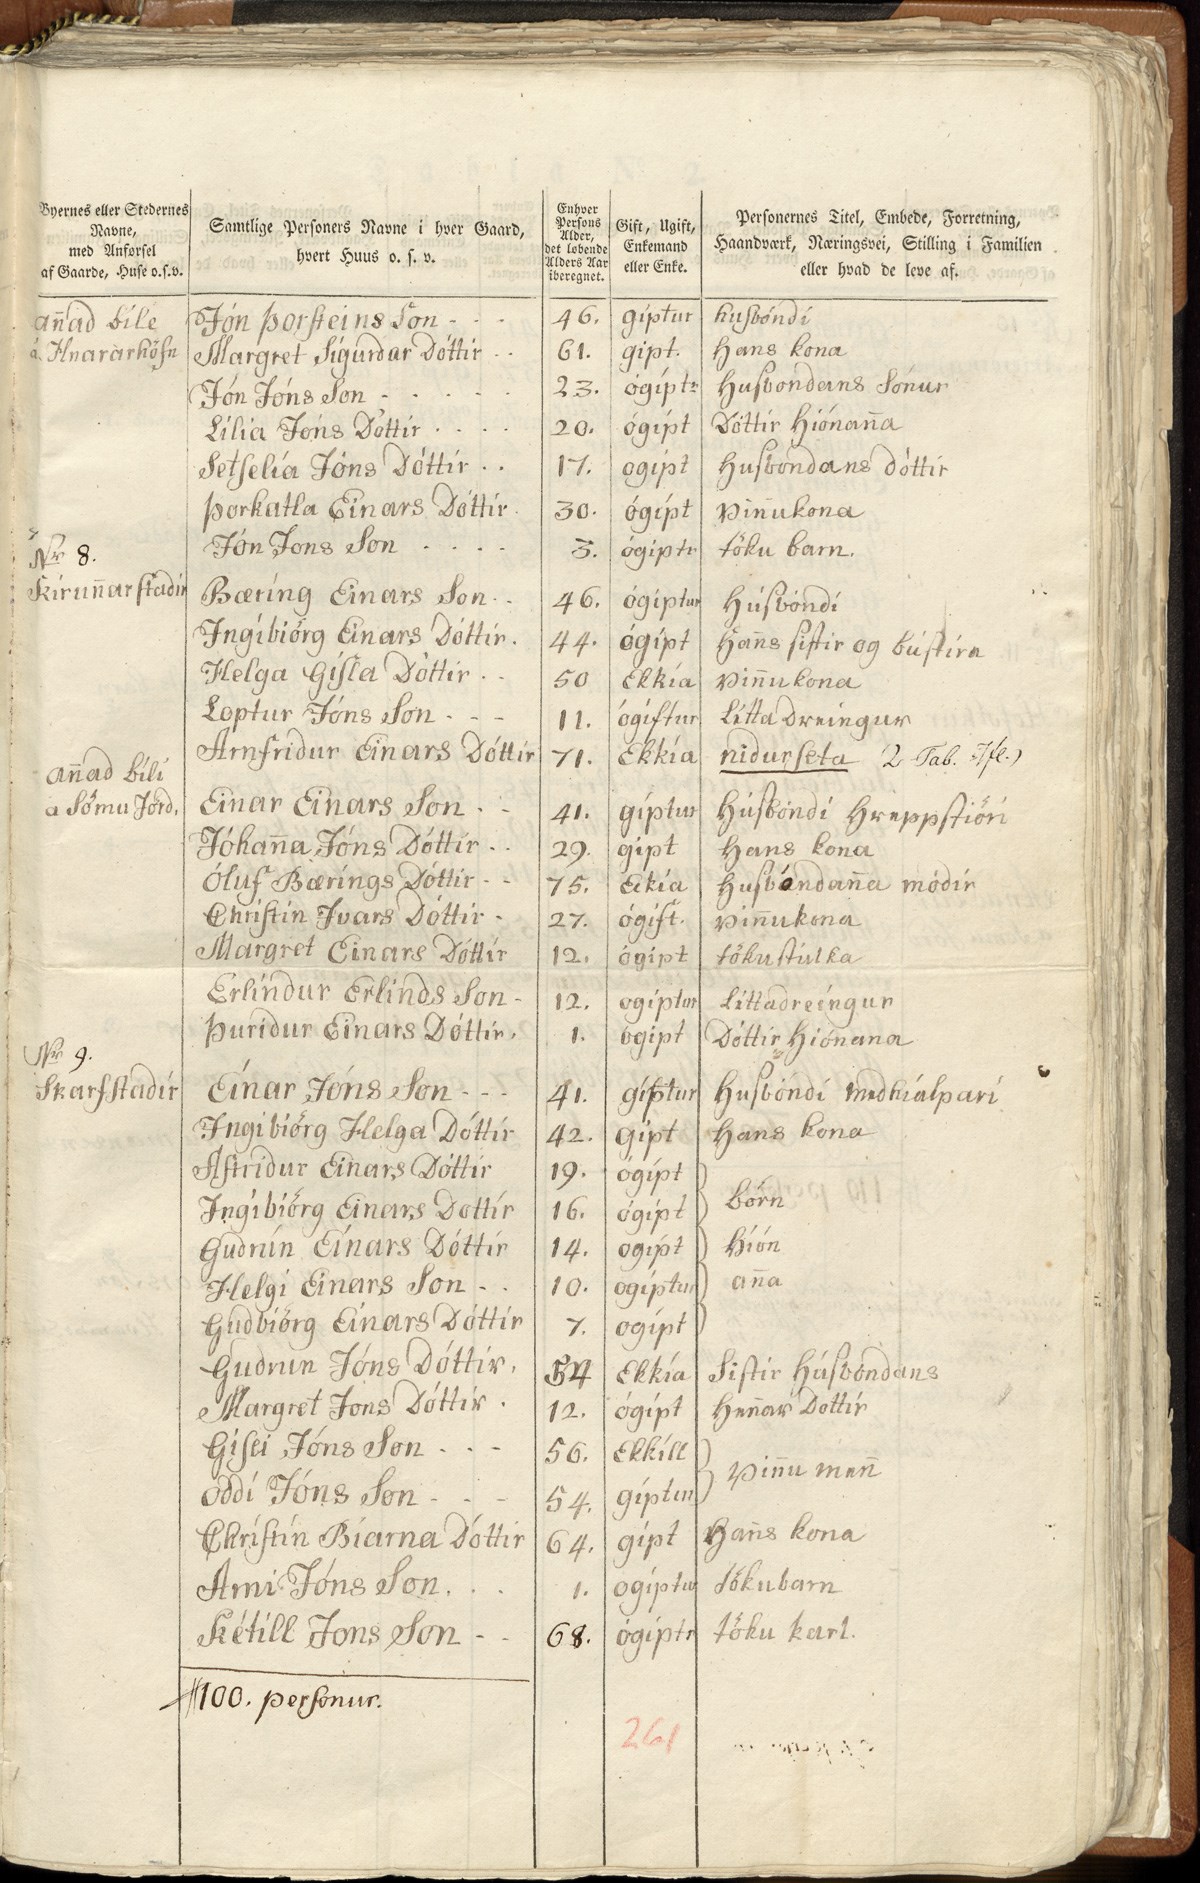 Byernes eller Stedernes Navne, med Anførsel af Gaarde, Huse o.s.v. Samtlige Personers Navne i hver Gaard, hvert Huus o. s. v. Enhver Persons Alder, det løbende Alders Aar iberegnet. Gift, Ugift, Enkemand eller Enke. Personernes Titel, Embede, Forretning, Haandværk, Næringsvei, Stilling i Familien eller hvad de leve af.
an̄ad bile Jón Þorsteins Son - - - 46. giptur husbóndi
á Hnararhöfn Margret Sigurdar Dóttir - - 61. gipt. hans kona
Jón Jóns Son - - - - - 23. ógiptr husbondans Sonur
Lilia Jóns Dóttir - - - - 20. ógipt Dóttir hiónan̄a
Setselia Jóns Dóttir - - 17. ogipt husbondans dóttir
Þorkatla Einars Dóttir. 30. ógipt vin̄ukona
Jón Jons Son - - - - 3. ógiptr töku barn.
Nr 8.
Kirun̄arstadir Bæring Einars Son - - 46. ógiptur húsbóndi
Ingibiörg Einars Dóttir. 44. ógipt han̄s sistir og bústira
Helga Gisla Dóttir - - 50 Ekkia vin̄ukona
Loptur Jóns Son - - - 11. ógiftur Litta dreingur
Arnfridur Einars Dóttir 71. Ekkia nidurseta 2 Tab.
an̄ad bili
a Sömu Jörd. Einar Einars Son - - 41. giptur húsbóndi hreppstióri
Jóhan̄a Jóns Dóttir - - 29. gipt hans kona
Óluf Bærings Dóttir - - 75. Eckia husbóndan̄a módir
Christin Ivars Dóttir - 27. ógift. vin̄ukona
Margret Einars Dóttir 12. ógipt tökustulka
Erlindur Erlinds Son - 12. ogiptur Littadreingur
Þuridur Einars Dóttir. 1. ógipt Dóttir hiónana
Nr 9.
Skarfstadir Einar Jóns Son - - - 41. giptur husbóndi medhialpari
Ingibiörg Helga Dóttir 42. gipt hans kona
Astridur Einars Dóttir 19. ógipt
Ingibiörg Einars Dottir 16. ógipt börn
Gudrún Einars Dóttir 14. ogipt hión
Helgi Einars Son - - 10. ogiptur an̄a
Gudbiörg Einars Dóttir 7. ogipt
Gudrun Jóns Dóttir. 54 Ekkia Sistir húsbóndans
Margret Jons Dóttir. 12. ógipt hen̄ar Dottir
Gisli Jóns Son - - - 56. Ekkill
Oddi Jóns Son - - - 54. giptur vin̄u men̄
Christin Biarna Dóttir 64. gipt Han̄s kona
Arni Jóns Son. - - 1. ogiptur tökubarn
Kétill Jons Son - - 68. ógiptr töku karl.
100. personur.
261